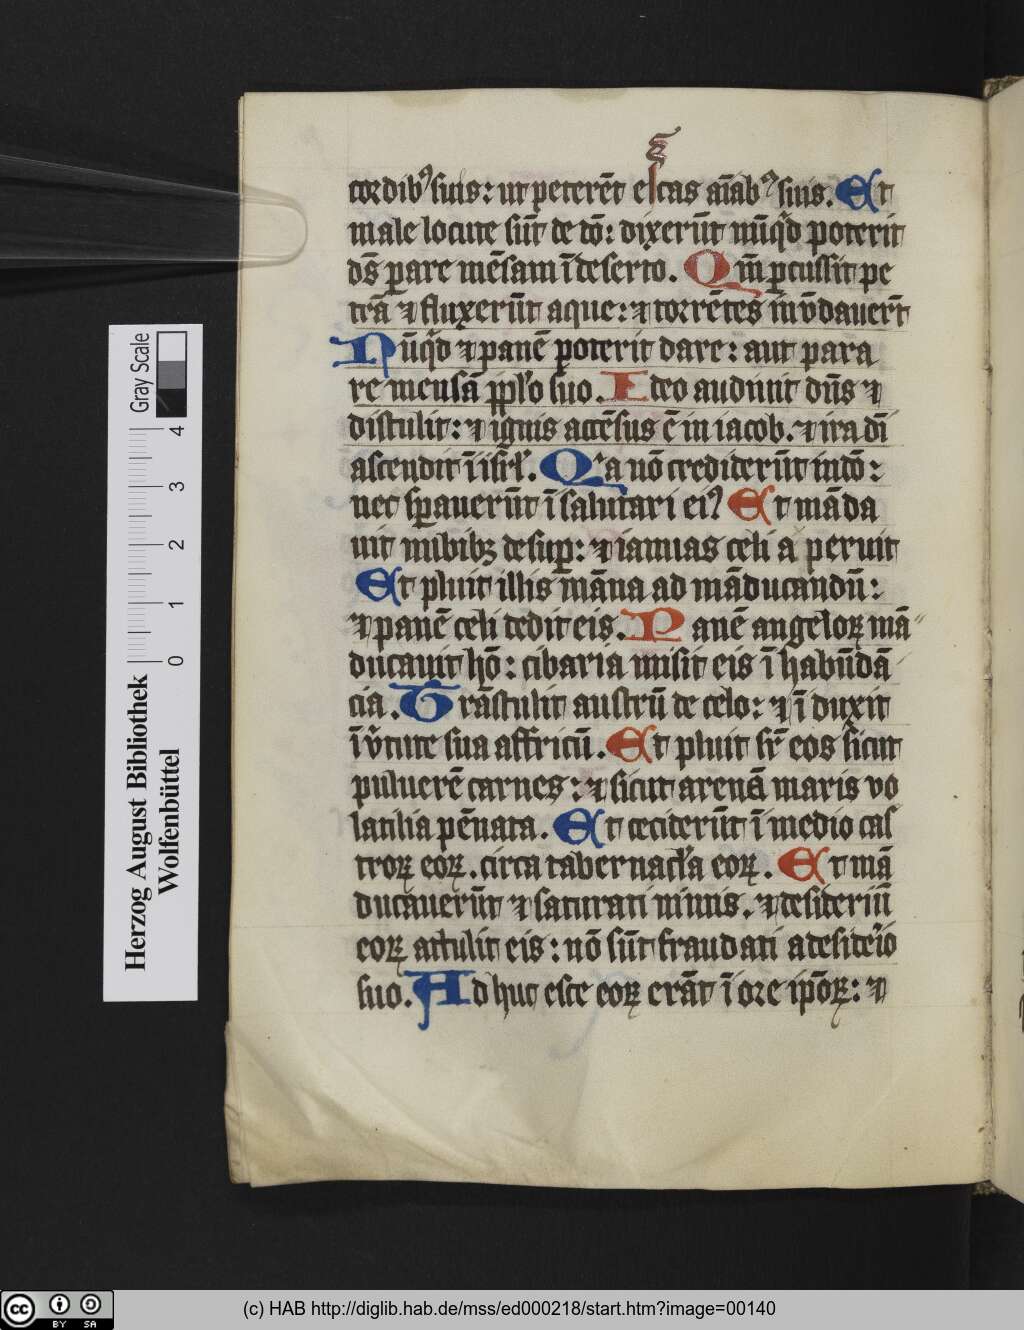 cordibꝰ suis: ut peterēt escas aīabꝰ suis. Et
male locute sūt de dō: dixerūt nūqͥd poterit
ds̄ parare mēsam ī deserto. Qm̄ ꝑcussit pe
trā ⁊ fluxerūt aque: ⁊ torrētes inūdauerūt
Nūqͥd ⁊ panē poterit dare: aut para
re mensā pplo suo. Ideo audiuit dn̄s ⁊
distulit: ⁊ ignis accēsus ē in iacob. ⁊ ira dī
ascendit ī isrl̓. Qͥa nō crediderūt in dō:
nec sꝑauerūt ī salutari eiꝰ Et māda
uit nubibꝫ desuꝑ: ⁊ ianuas celi aperuit
Et pluit illis māna ad māducandū:
⁊ panē celi dedit eis. Panē angeloꝝ mā
ducauit hō: cibaria misit eis ī habūdā
cia. Trāstulit austrū de celo: ⁊ īduxit
ī v̓tute sua affricū. Et pluit sr̄ eos sicut
puluerē carnes: ⁊ sicut arenā maris vo
latilia pēnata. Et ceciderūt ī medio cas
troꝝ eoꝝ. circa tabernacl̓a eoꝝ. Et mā
ducauerūt ⁊ saturati nimis. ⁊ desideriū
eoꝝ attulit eis: nō sūt fraudati a desid̓io
suo. Adhuc esce eoꝝ erāt ī ore ipōꝝ: ⁊
Gray Scale
4
3
2
1
0
Herzog August Bibliothek
Wolfenbüttel
cc
BY SA
(c) HAB http://diglib.hab.de/mss/ed000218/start.htm?image=00140